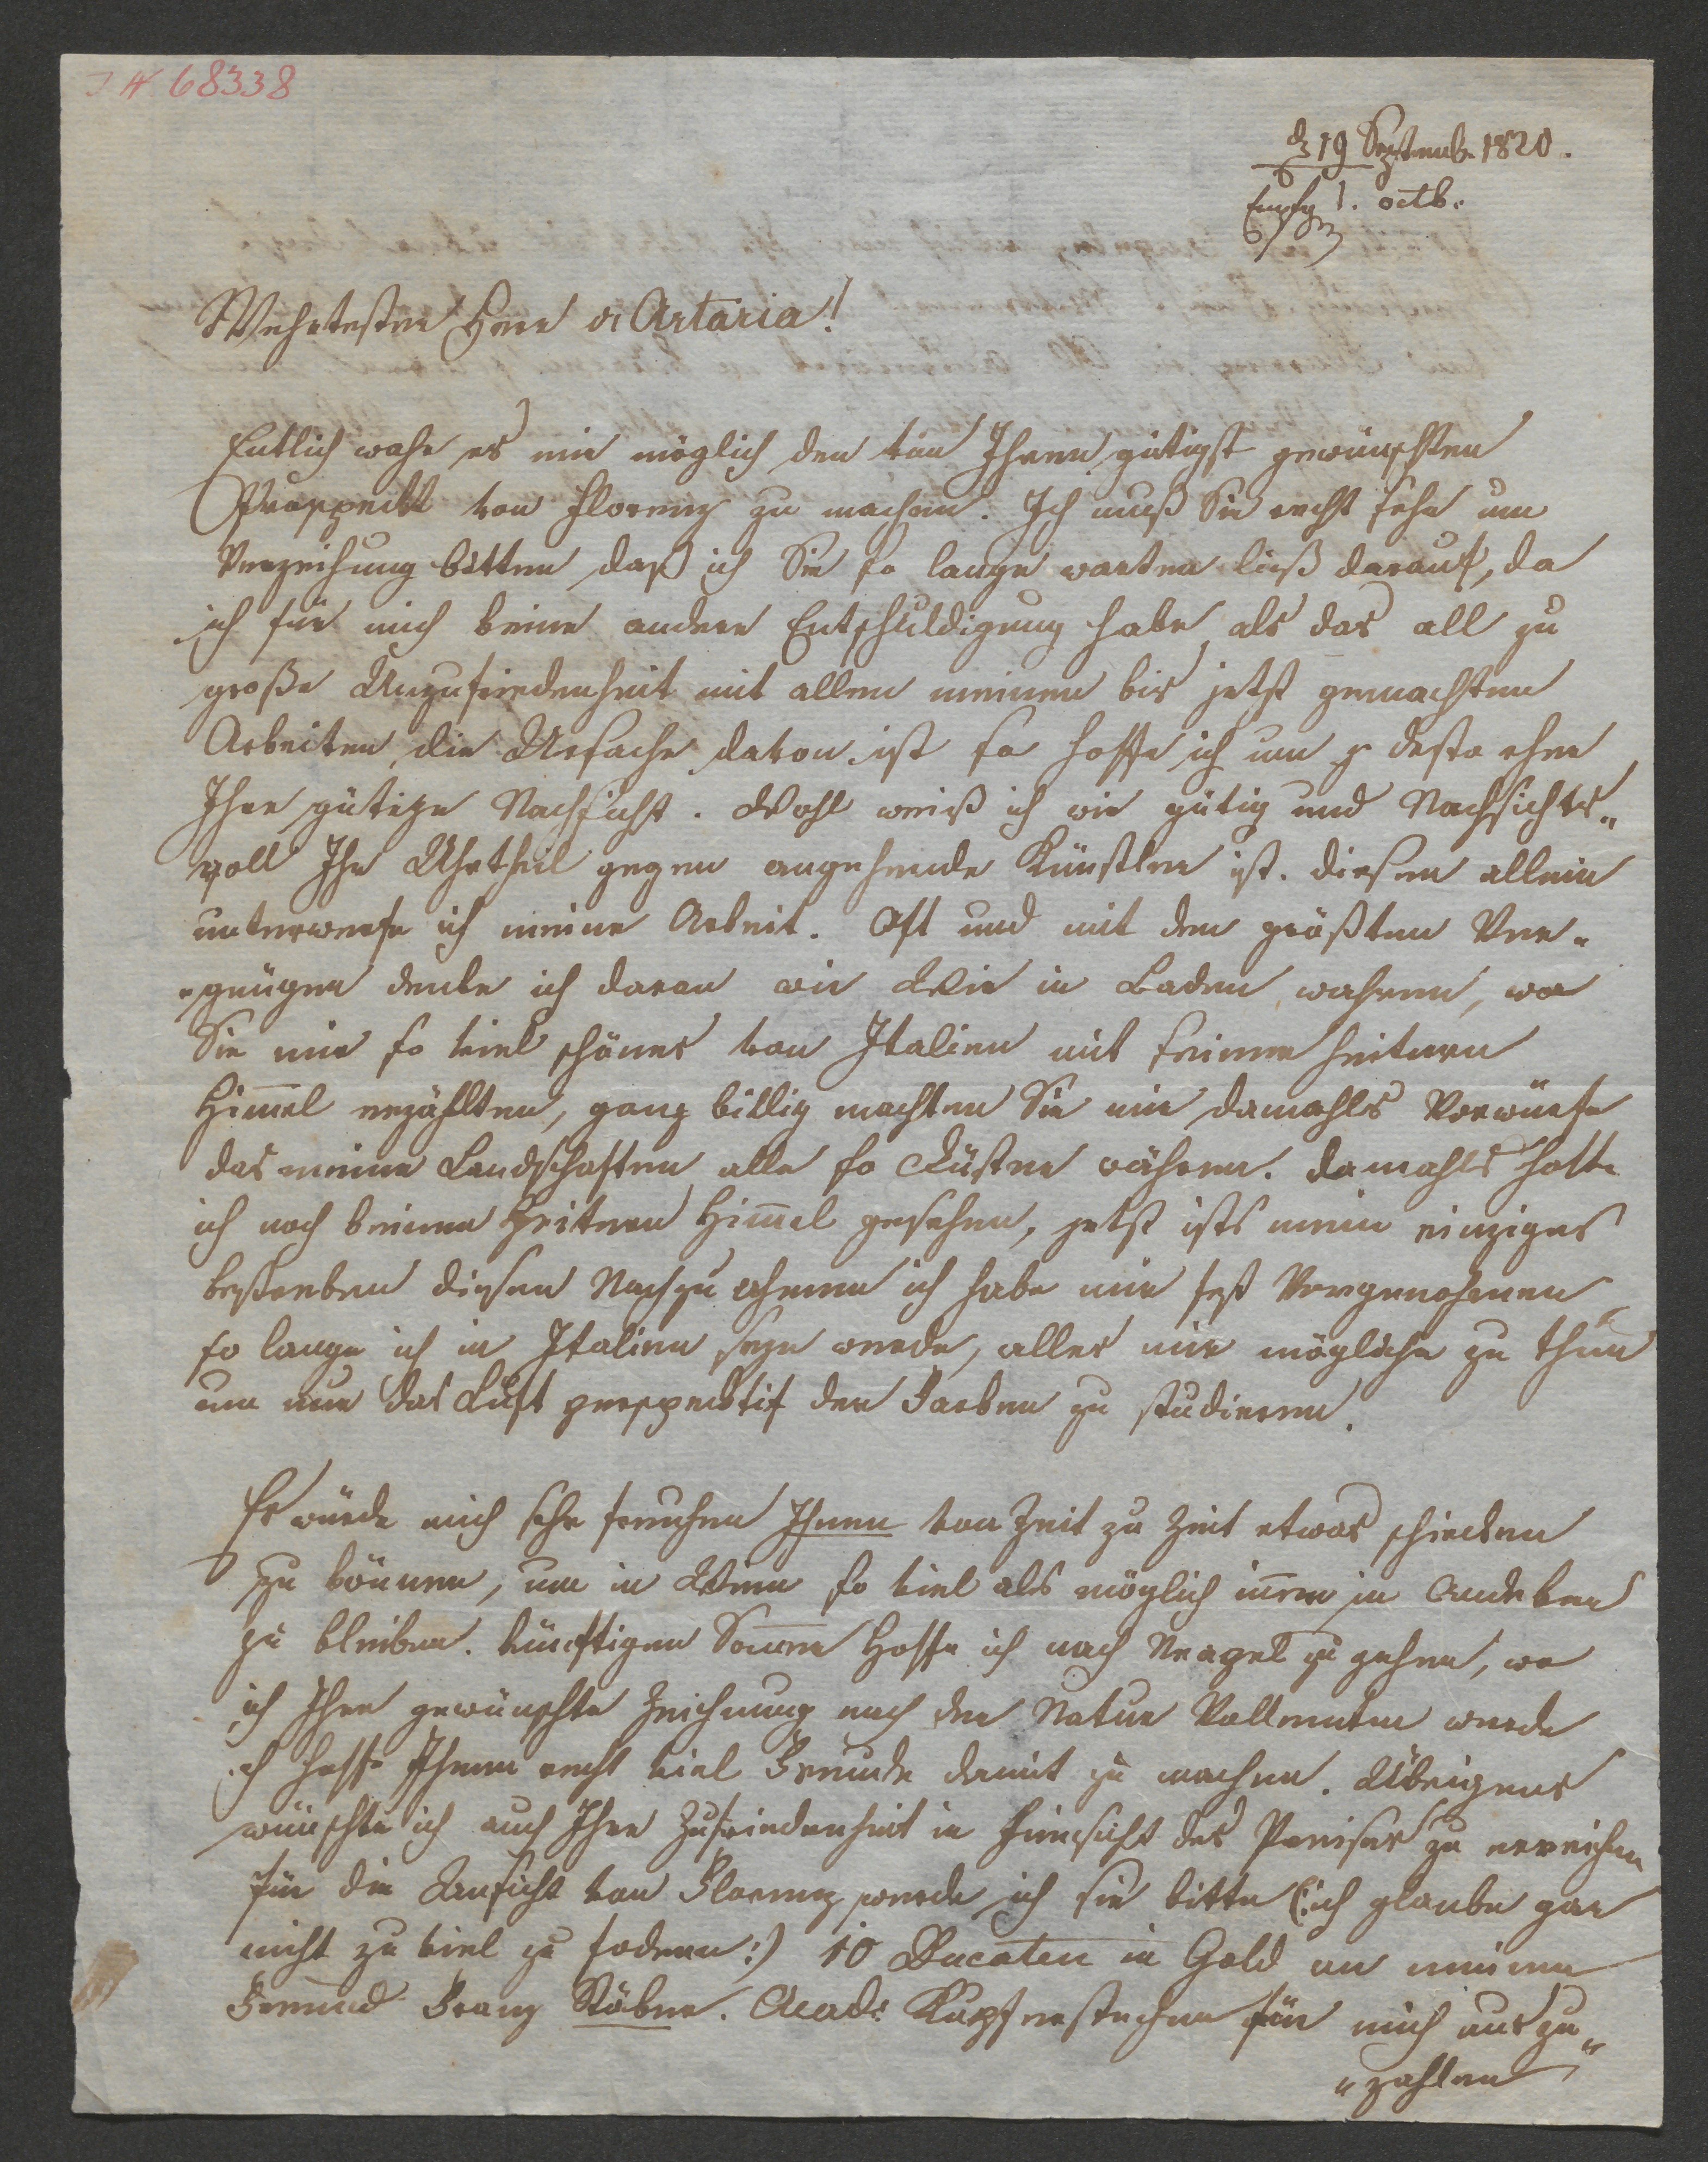 J N 68338
d 19 Septemb. 1820.
Empfg 1. octb.
Wehrtester Herr v Artaria!
Entlich wahr es mir möglich den von Ihnen gütigst gewünschten
Prospeckt von Florenz zu machen. Ich muß Sie recht sehr um
Verzeihung bitten daß ich Sie so lange warten ließ darauf, da
ich für mich keine andere Entschuldigung habe als das all zu
große Unzufriedenheit mit allen meinen bis jetzt gemachten
Arbeiten die Ursache davon ist so hoffe ich um desto eher
Ihre gütige Nachsicht. Wohl weiß ich wie gütig und Nachsichts„
voll Ihr Uhrtheil gegen angehende Künstler ist. diesen allein
unterwerfe ich meine Arbeit. Oft und mit den größten Ver„
„gnügen denke ich daran wie Wir in Baden wahren, wo
Sie mir so viel schönes von Italien mit seinem heitern
Himmel erzählten, ganz billig machten Sie mir damahls Vorwürfe
das meine Landschaften alle so Düster währen. damahls hatte
ich noch keinen Heitern Himmel gesehen, jetzt ists mein einziges
bestreben diesen Nachzuahmen ich habe mir fest Vorgenohmen
so lange ich in Italien seyn werde, alles mir mögliche zu thun
um nur das Luft perspecktif der Farben zu studieren.
Es würde mich sehr freuhen Ihnen von Zeit zu Zeit etwas schicken
zu können, um in Wien so viel als möglich immer in Andeken
zu bleiben. künftigen Sommer Hoffe ich nach Neapel zu gehen, wo
ich Ihre gewünschte Zeichnung nach der Natur Vollenden werde
ich hoffe Ihnen recht viel Freude damit zu machen. Übrigens
wünschte ich auch Ihre Zufriedenheit in hinsicht des Preises zu erreichen
für die Ansicht von Florenz werde ich sie bitte (:ich glaube gar
nicht zu viel zu fodern:) 10 Ducaten in Gold an meinen
Freund Franz Stöber. Acad: Kupferstecher für mich auszu„
„zahlen